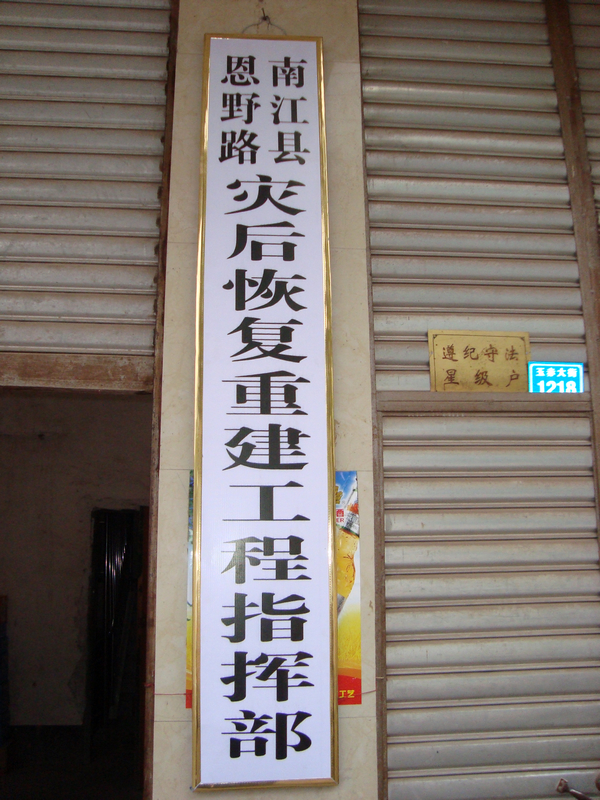 南江县
恩野路
灾后恢复重建工程指挥部
遵纪守法
星级户
1218
工艺